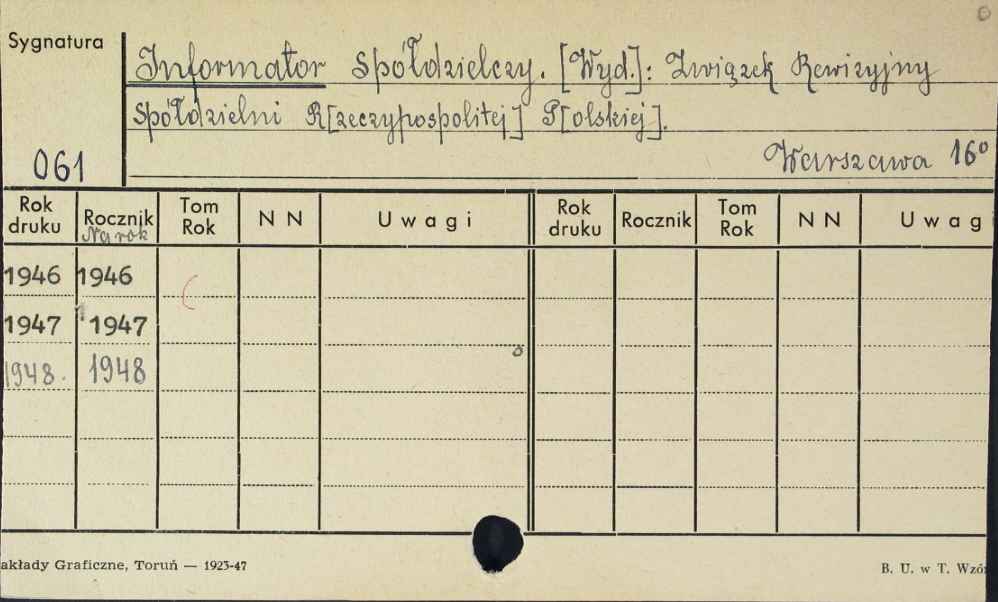 Sygnatura
Informator Spółdzielczy. [Wyd.]: Związek Rewizyjny
Spółdzielni R[zeczypospolitej] P[olskiej].
061
Warszawa 16°
Rok druku Rocznik Tom Rok N N Uwagi Rok druku Rocznik Tom Rok N N Uwag
Na rok
1946 1946
1947 1947
1948. 1948
akłady Graficzne, Toruń — 1923-47
B. U. w T. Wzór